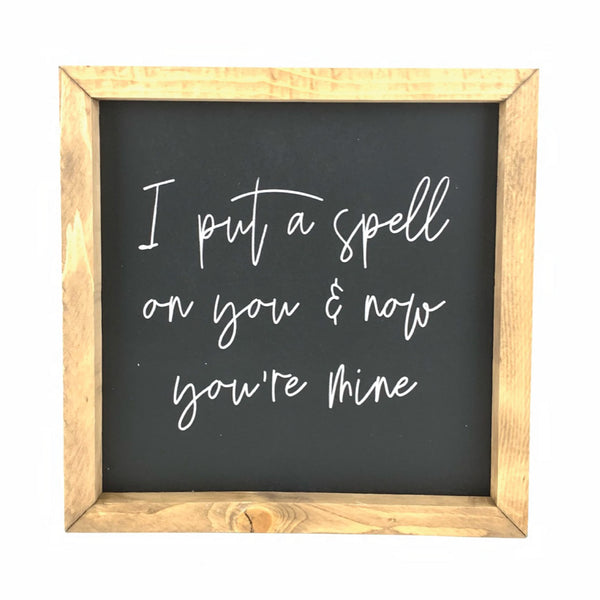 I put a spell
on you & now
you're mine